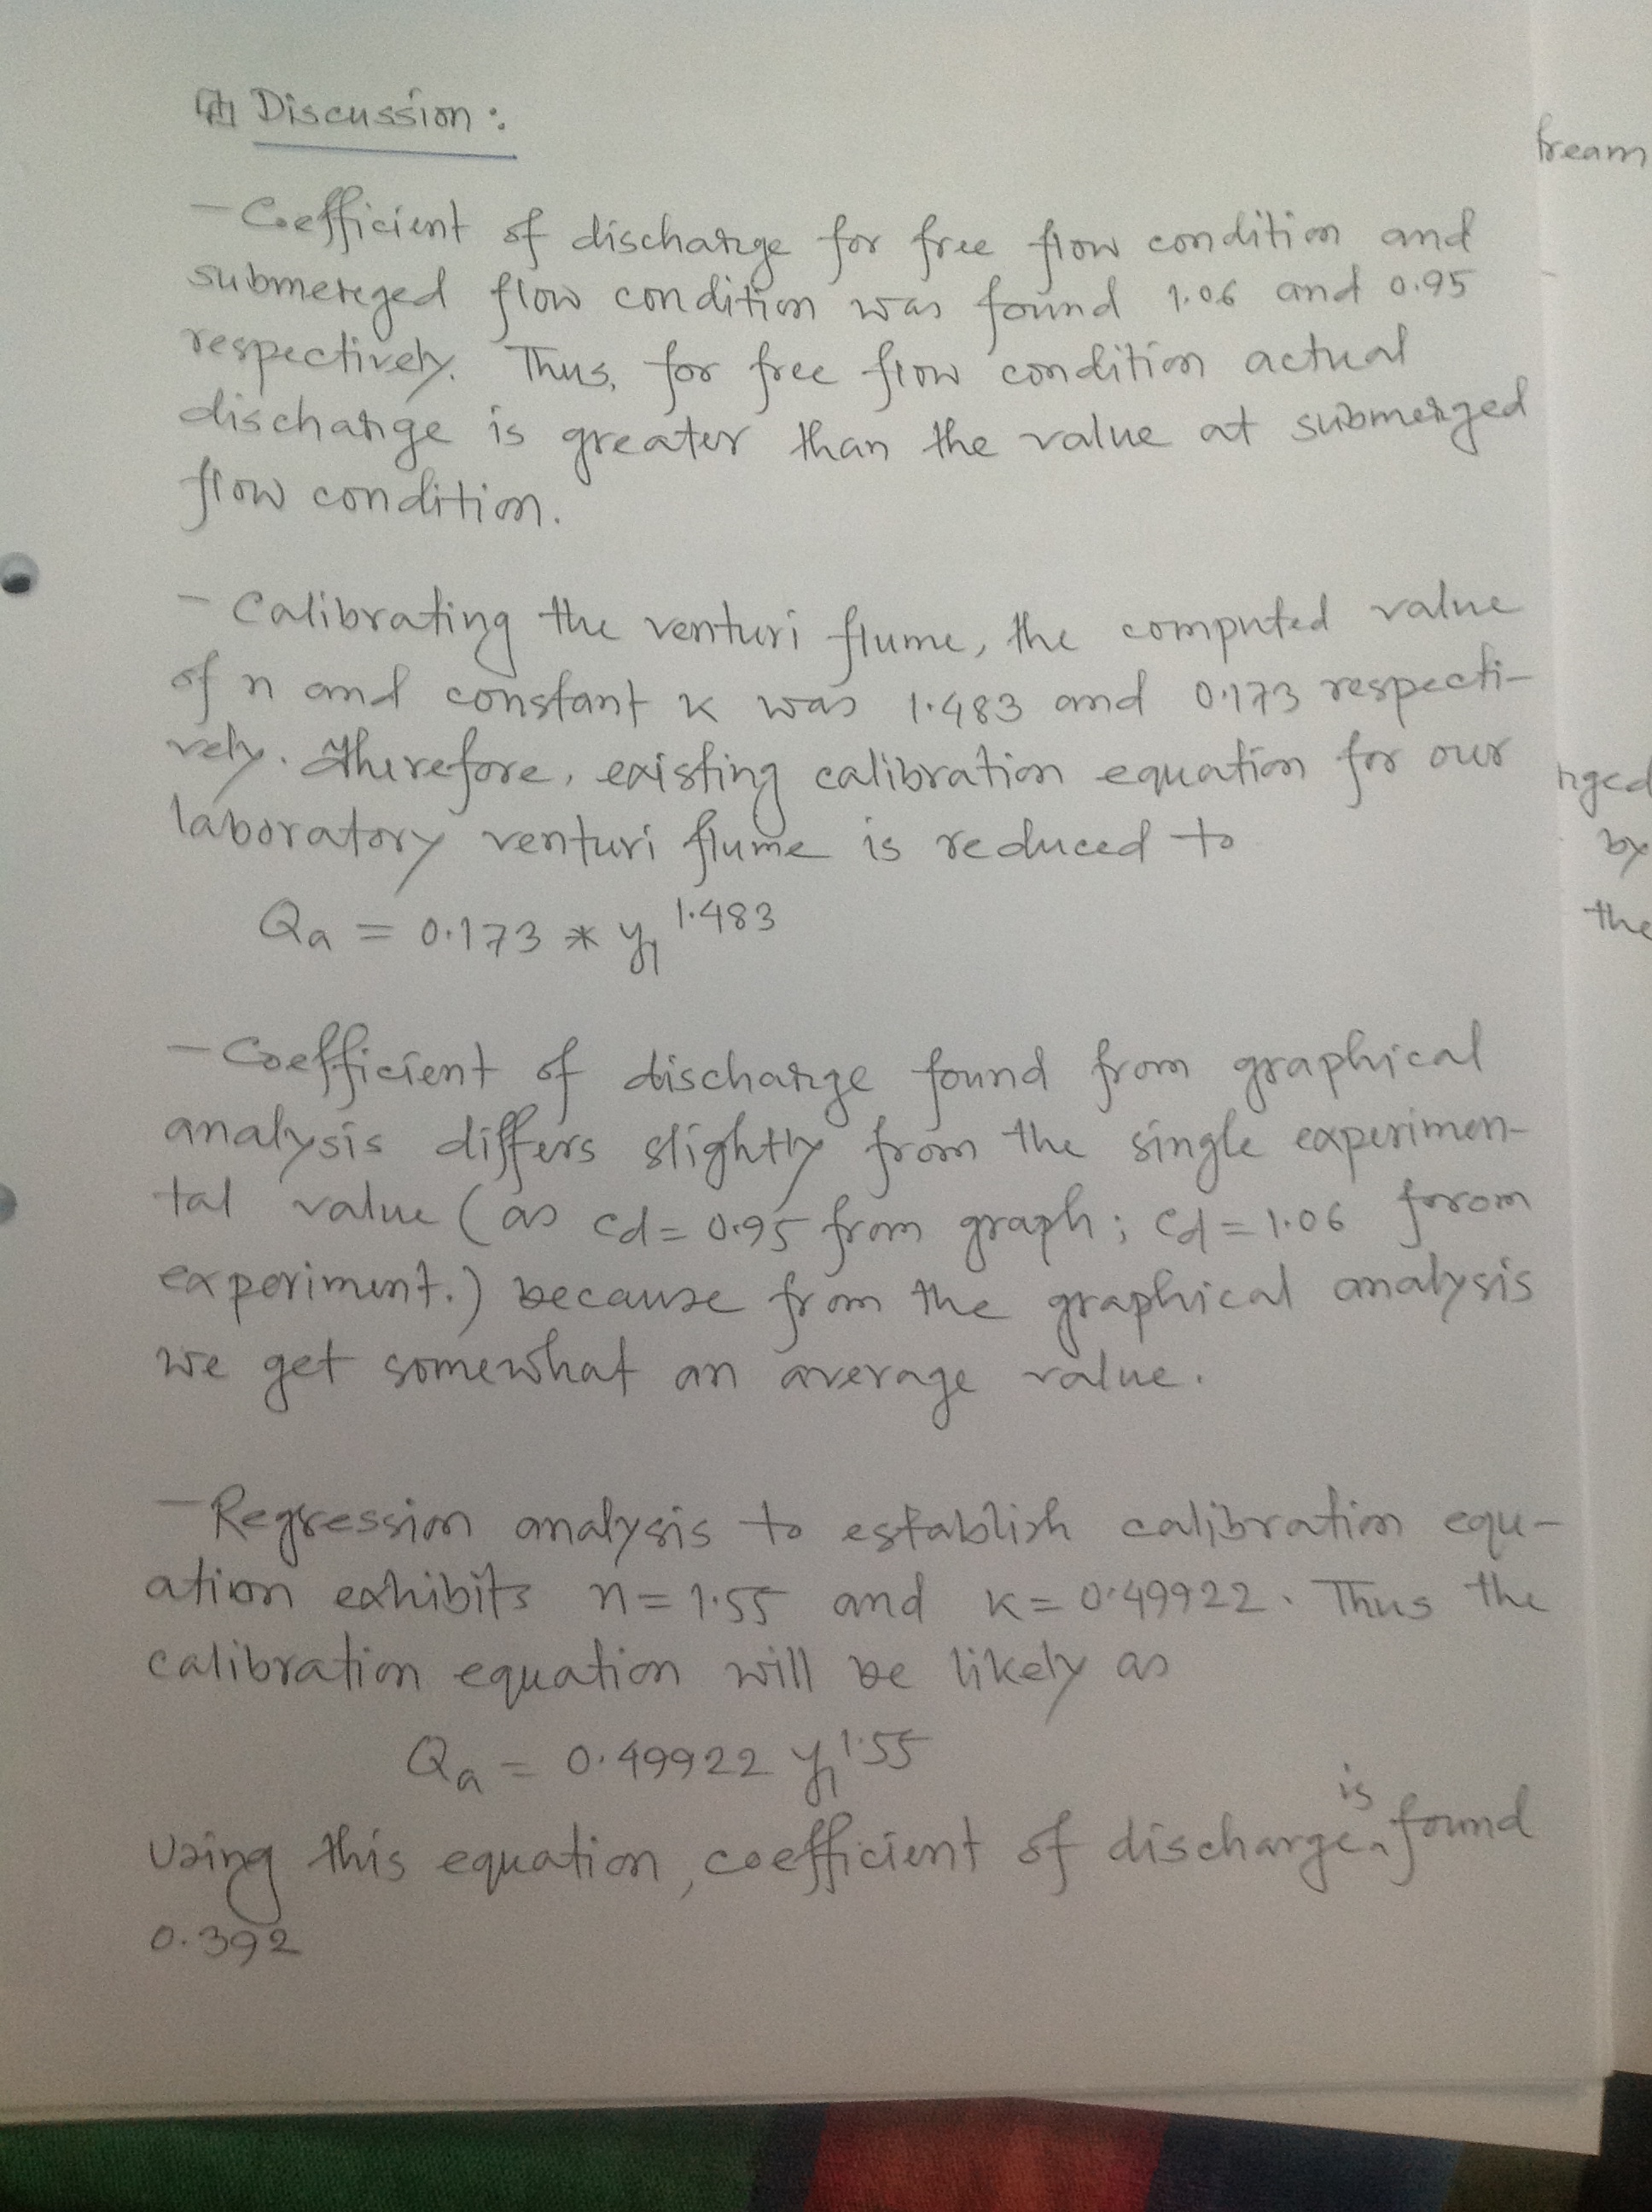 Discussion :
fream
- Coefficient of discharge for free flow condition and
submerged flow condition was found 1.06 and 0.95
respectively. Thus, for free flow condition actual
discharge is greater than the value at submerged
flow condition.
- Calibrating the venturi flume, the computed value
of n and constant K was 1.483 and 0.173 respecti-
vely. Therefore, existing calibration equation for our
laboratory venturi flume is reduced to
rged
by
the
Qa = 0.173 * y₁^1.483
- Coefficient of discharge found from graphical
analysis differs slightly from the single experimen-
tal value (as cd = 0.95 from graph ; cd = 1.06 from
experiment.) because from the graphical analysis
we get somewhat an average value.
- Regression analysis to establish calibration equ-
ation exhibits n = 1.55 and K = 0.49922. Thus the
calibration equation will be likely as
Qa = 0.49922 y₁^1.55
Using this equation, coefficient of discharge is found
0.392